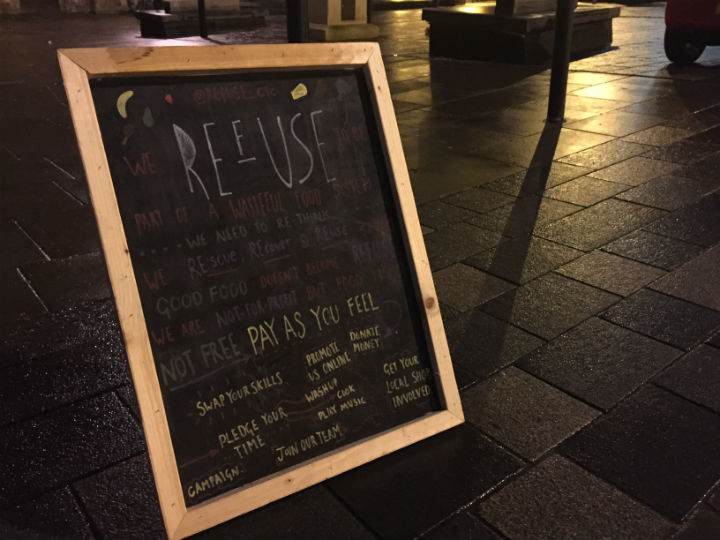 @REFUSE_CIC
WE REFUSE TO BE
PART OF A WASTEFUL FOOD SYSTEM
.... WE NEED TO RE-THINK
WE REscue, REcover & REuse
GOOD FOOD DOESN'T BECOME REFUSE
WE ARE NOT-FOR-PROFIT BUT FOOD
NOT FREE PAY AS YOU FEEL
SWAP YOUR SKILLS
PROMOTE US ONLINE
DONATE MONEY
WASH UP
COOK
GET YOUR LOCAL SHOP INVOLVED
PLEDGE YOUR TIME
PLAY MUSIC
JOIN OUR TEAM
CAMPAIGN.